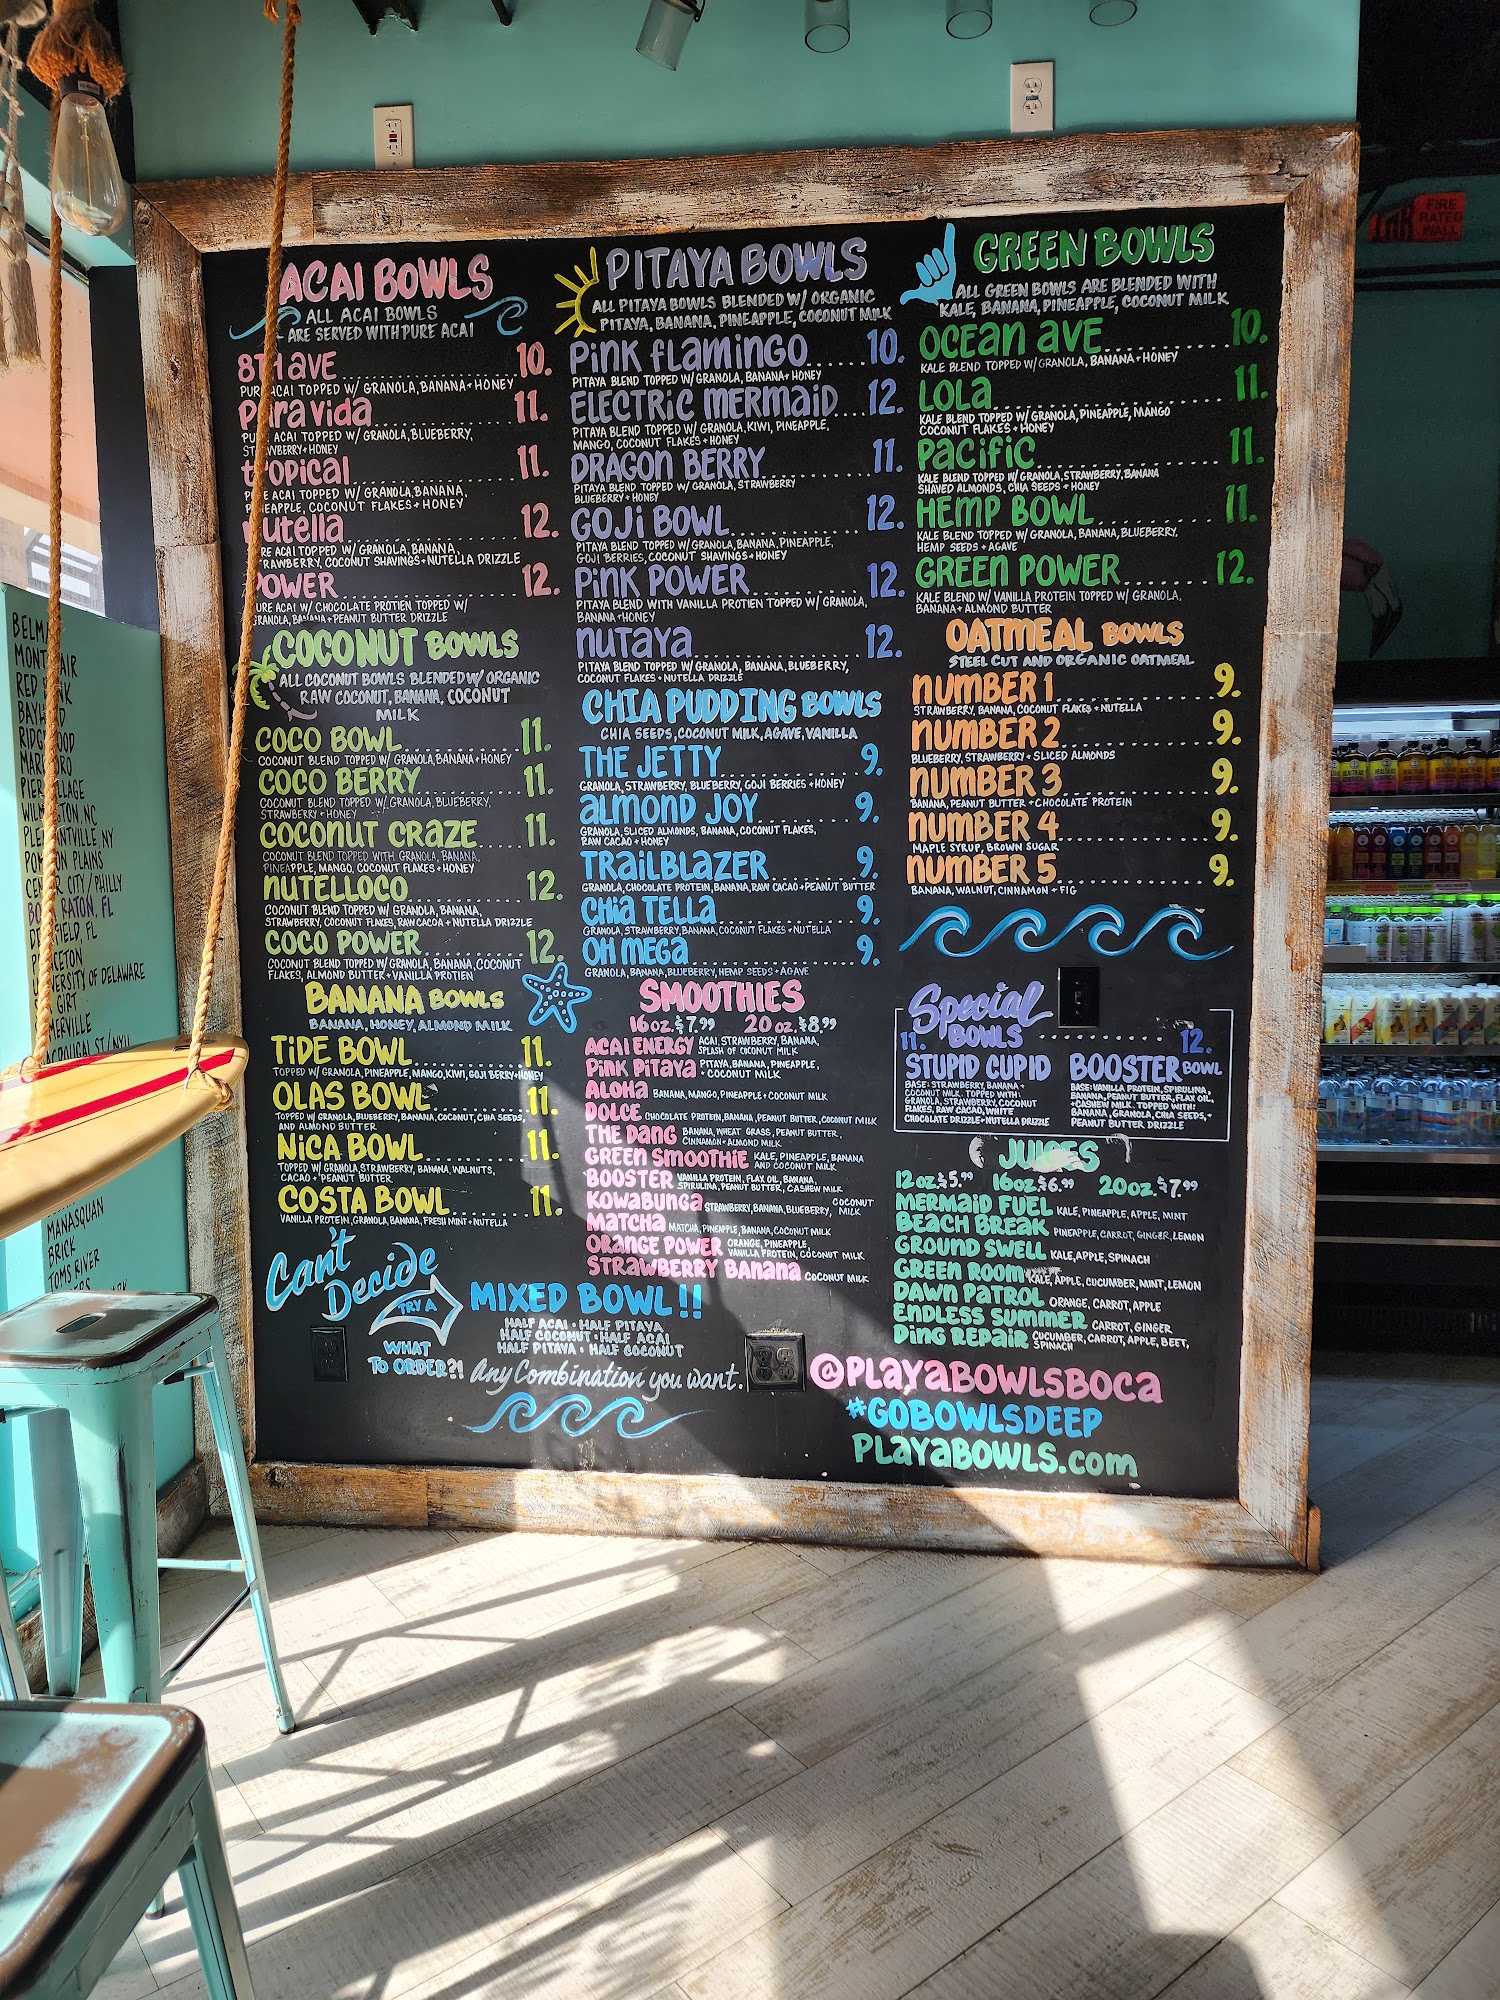 ACAI BOWLS
ALL ACAI BOWLS
ARE SERVED WITH PURE ACAI
8TH AVE 10.
PURE ACAI TOPPED W/ GRANOLA, BANANA + HONEY
PARA VIDA 11.
ACAI TOPPED W/ GRANOLA, BLUEBERRY,
STRAWBERRY + HONEY
TROPICAL 11.
ACAI TOPPED W/ GRANOLA, BANANA,
PINEAPPLE, COCONUT FLAKES + HONEY
NUTELLA 12.
ACAI TOPPED W/ GRANOLA, BANANA,
STRAWBERRY, COCONUT SHAVINGS + NUTELLA DRIZZLE
POWER 12.
PURE ACAI W/ CHOCOLATE PROTIEN TOPPED W/
GRANOLA, BANANA + PEANUT BUTTER DRIZZLE
COCONUT BOWLS
ALL COCONUT BOWLS BLENDED W/ ORGANIC
RAW COCONUT, BANANA, COCONUT
MILK
COCO BOWL 11.
COCONUT BLEND TOPPED W/ GRANOLA, BANANA + HONEY
COCO BERRY 11.
COCONUT BLEND TOPPED W/ GRANOLA, BLUEBERRY,
STRAWBERRY + HONEY
COCONUT CRAZE 11.
COCONUT BLEND TOPPED WITH GRANOLA, BANANA,
PINEAPPLE, MANGO, COCONUT FLAKES + HONEY
NUTELLOCO 12.
COCONUT BLEND TOPPED W/ GRANOLA, BANANA,
STRAWBERRY, COCONUT FLAKES, RAW CACOA + NUTELLA DRIZZLE
COCO POWER 12.
COCONUT BLEND TOPPED W/ GRANOLA, BANANA, COCONUT
FLAKES, ALMOND BUTTER + VANILLA PROTIEN
BANANA BOWLS
BANANA, HONEY, ALMOND MILK
TIDE BOWL 11.
TOPPED W/ GRANOLA, PINEAPPLE, MANGO, KIWI, GOJI BERRY + HONEY
OLAS BOWL 11.
TOPPED W/ GRANOLA, BLUEBERRY, BANANA, COCONUT, CHIA SEEDS,
AND ALMOND BUTTER
NICA BOWL 11.
TOPPED W/ GRANOLA, STRAWBERRY, BANANA, WALNUTS,
CACAO + PEANUT BUTTER
COSTA BOWL 11.
VANILLA PROTEIN, GRANOLA, BANANA, FRESH MINT + NUTELLA
Can't
Decide
TRY A
MIXED BOWL!!
HALF ACAI · HALF PITAYA
HALF COCONUT · HALF ACAI
HALF PITAYA · HALF COCONUT
WHAT
TO ORDER?!
Any Combination you want.
PITAYA BOWLS
ALL PITAYA BOWLS BLENDED W/ ORGANIC
PITAYA, BANANA, PINEAPPLE, COCONUT MILK
PINK FLAMINGO 10.
PITAYA BLEND TOPPED W/ GRANOLA, BANANA + HONEY
ELECTRIC MERMAID 12.
PITAYA BLEND TOPPED W/ GRANOLA, KIWI, PINEAPPLE,
MANGO, COCONUT FLAKES + HONEY
DRAGON BERRY 11.
PITAYA BLEND TOPPED W/ GRANOLA, STRAWBERRY
BLUEBERRY + HONEY
GOJI BOWL 12.
PITAYA BLEND TOPPED W/ GRANOLA, BANANA, PINEAPPLE,
GOJI BERRIES, COCONUT SHAVINGS + HONEY
PINK POWER 12.
PITAYA BLEND WITH VANILLA PROTIEN TOPPED W/ GRANOLA,
BANANA + HONEY
NUTAYA 12.
PITAYA BLEND TOPPED W/ GRANOLA, BANANA, BLUEBERRY,
COCONUT FLAKES + NUTELLA DRIZZLE
CHIA PUDDING BOWLS
CHIA SEEDS, COCONUT MILK, AGAVE, VANILLA
THE JETTY 9.
GRANOLA, STRAWBERRY, BLUEBERRY, GOJI BERRIES + HONEY
ALMOND JOY 9.
GRANOLA, SLICED ALMONDS, BANANA, COCONUT FLAKES,
RAW CACAO + HONEY
TRAILBLAZER 9.
GRANOLA, CHOCOLATE PROTEIN, BANANA, RAW CACAO + PEANUT BUTTER
CHIA TELLA 9.
GRANOLA, STRAWBERRY, BANANA, COCONUT FLAKES + NUTELLA
OH MEGA 9.
GRANOLA, BANANA, BLUEBERRY, HEMP SEEDS + AGAVE
SMOOTHIES
16 OZ. $7.99 20 OZ. $8.99
ACAI ENERGY ACAI, STRAWBERRY, BANANA,
SPLASH OF COCONUT MILK
PINK PITAYA PITAYA, BANANA, PINEAPPLE,
+ COCONUT MILK
ALOHA BANANA, MANGO, PINEAPPLE + COCONUT MILK
DOLCE CHOCOLATE PROTEIN, BANANA, PEANUT BUTTER, COCONUT MILK
THE DANG BANANA, WHEAT GRASS, PEANUT BUTTER,
CINNAMON + ALMOND MILK
GREEN SMOOTHIE KALE, PINEAPPLE, BANANA
AND COCONUT MILK
BOOSTER VANILLA PROTEIN, FLAX OIL, BANANA,
SPIRULINA, PEANUT BUTTER, CASHEW MILK
KOWABUNGA STRAWBERRY, BANANA, BLUEBERRY, COCONUT
MILK
MATCHA MATCHA, PINEAPPLE, BANANA, COCONUT MILK
ORANGE POWER ORANGE, PINEAPPLE,
VANILLA PROTEIN, COCONUT MILK
STRAWBERRY BANANA COCONUT MILK
GREEN BOWLS
ALL GREEN BOWLS ARE BLENDED WITH
KALE, BANANA, PINEAPPLE, COCONUT MILK
OCEAN AVE 10.
KALE BLEND TOPPED W/ GRANOLA, BANANA + HONEY
LOLA 11.
KALE BLEND TOPPED W/ GRANOLA, PINEAPPLE, MANGO
COCONUT FLAKES + HONEY
PACIFIC 11.
KALE BLEND TOPPED W/ GRANOLA, STRAWBERRY, BANANA
SHAVED ALMONDS, CHIA SEEDS + HONEY
HEMP BOWL 11.
KALE BLEND TOPPED W/ GRANOLA, BANANA, BLUEBERRY,
HEMP SEEDS + AGAVE
GREEN POWER 12.
KALE BLEND W/ VANILLA PROTEIN TOPPED W/ GRANOLA,
BANANA + ALMOND BUTTER
OATMEAL BOWLS
STEEL CUT AND ORGANIC OATMEAL
NUMBER 1 9.
STRAWBERRY, BANANA, COCONUT FLAKES + NUTELLA
NUMBER 2 9.
BLUEBERRY, STRAWBERRY + SLICED ALMONDS
NUMBER 3 9.
BANANA, PEANUT BUTTER + CHOCOLATE PROTEIN
NUMBER 4 9.
MAPLE SYRUP, BROWN SUGAR
NUMBER 5 9.
BANANA, WALNUT, CINNAMON + FIG
Special
BOWLS
11. 12.
STUPID CUPID
BASE: STRAWBERRY, BANANA +
COCONUT MILK. TOPPED WITH:
GRANOLA, STRAWBERRY, COCONUT
FLAKES, RAW CACAO, WHITE
CHOCOLATE DRIZZLE + NUTELLA DRIZZLE
BOOSTER BOWL
BASE: VANILLA PROTEIN, SPIRULINA,
BANANA, PEANUT BUTTER, FLAX OIL,
+ CASHEW MILK. TOPPED WITH:
BANANA, GRANOLA, CHIA SEEDS, +
PEANUT BUTTER DRIZZLE
JUICES
12 OZ. $5.99 16 OZ. $6.99 20 OZ. $7.99
MERMAID FUEL KALE, PINEAPPLE, APPLE, MINT
BEACH BREAK PINEAPPLE, CARROT, GINGER, LEMON
GROUND SWELL KALE, APPLE, SPINACH
GREEN ROOM KALE, APPLE, CUCUMBER, MINT, LEMON
DAWN PATROL ORANGE, CARROT, APPLE
ENDLESS SUMMER CARROT, GINGER
DING REPAIR CUCUMBER, CARROT, APPLE, BEET,
SPINACH
@PLAYABOWLSBOCA
#GOBOWLSDEEP
PLAYABOWLS.COM
1HR FIRE
RATED
WALL
BELMAR
MONTCLAIR
RED BANK
RIDGEWOOD
MARLBORO
PIER VILLAGE
WILMINGTON, NC
PLEASANTVILLE, NY
POMPTON PLAINS
CENTER CITY / PHILLY
BOCA RATON, FL
DEERFIELD, FL
PRINCETON
UNIVERSITY OF DELAWARE
GIRT
MANASQUAN
BRICK
TOMS RIVER